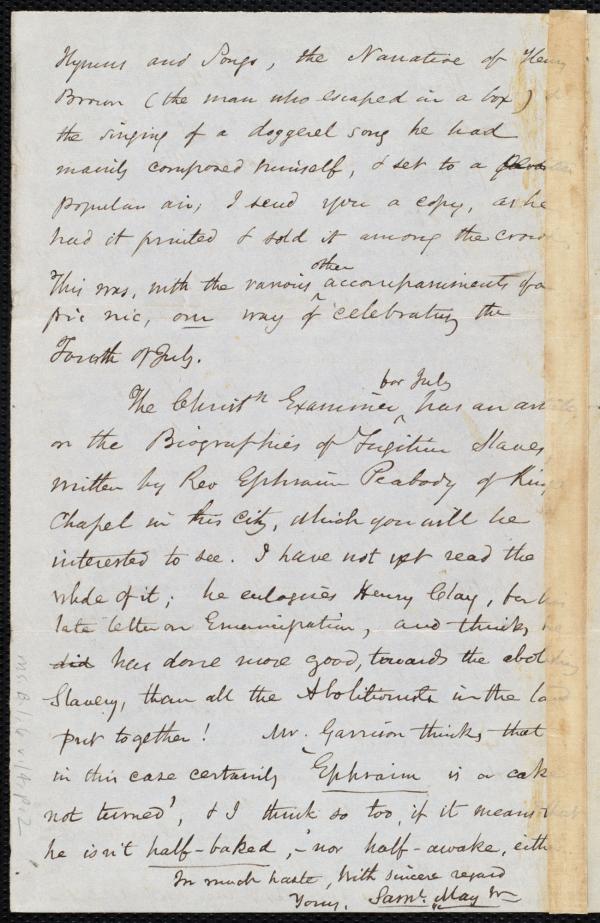 Hymns and Songs, the Narrative of Henry
Brown (the man who escaped in a box) &
the singing of a doggerel song he had
mainly composed himself, & set to a
popular air; I send you a copy, as he
had it printed & sold it among the crowd,
This was, with the various other accompaniments of a
pic nic, one way of celebrating the
Fourth of July.
The Christn Examiner for July has an article
on the Biographies of Fugitive Slaves,
written by Rev Ephraim Peabody of King's
Chapel in this city, which you will be
interested to see. I have not yet read the
whole of it; he eulogises Henry Clay, for his
late letter on Emancipation, and thinks he
did has done more good, towards the abolishing
Slavery, than all the Abolitionists in the land
put together! Mr. Garrison thinks that
in this case certainly 'Ephraim is a cake
not turned', & I think so too, if it means that
he isn't half-baked,-nor half-awake, either.
In much haste, with sincere regard
Yours, Saml. May Jr
Ms.B.1.6 v.14 p.2